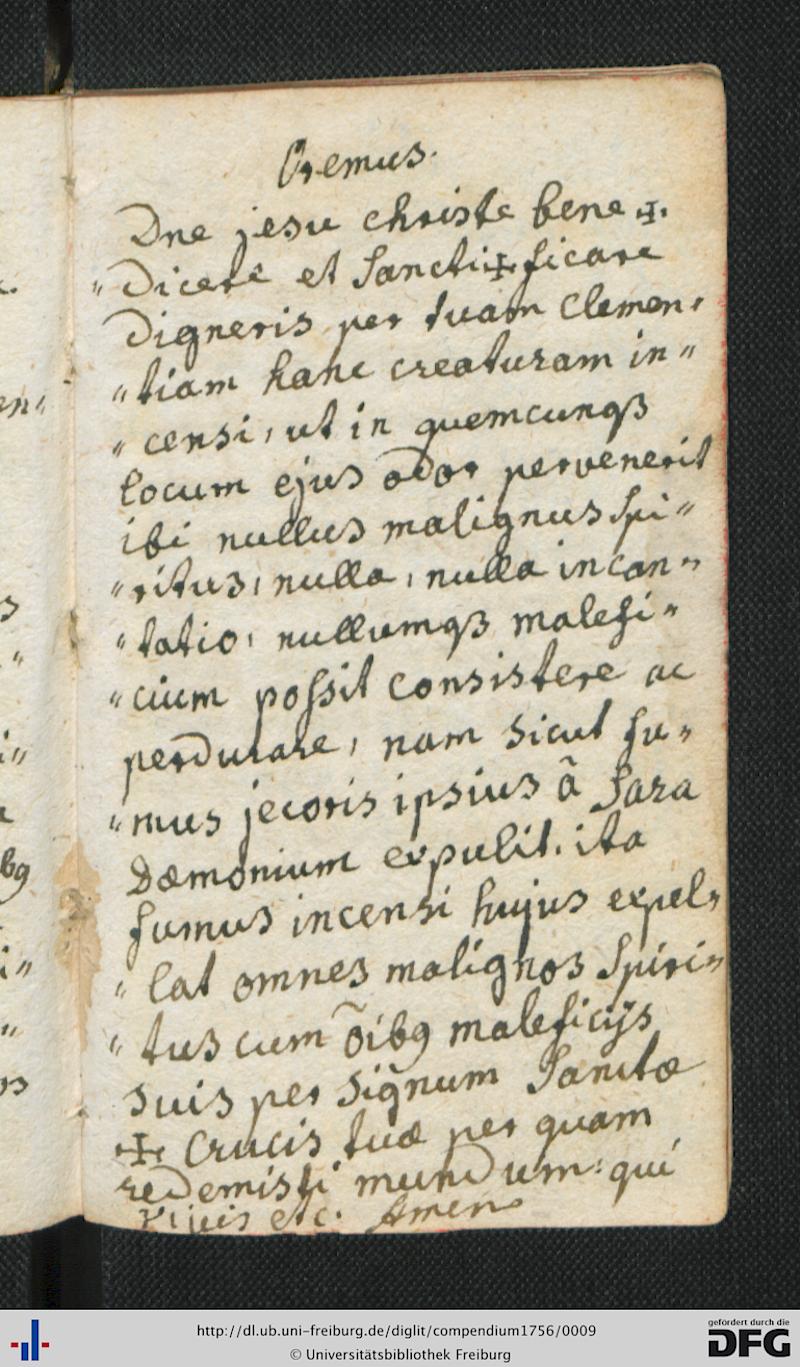 Oremus.
Dne jesu christe bene ✠.
„ dicere et Sancti✠ficare
digneris per tuam Clemen„
„ tiam hanc creaturam in„
„ censi, ut in quemcunqß
locum ejus odor pervenerit
ibi nullus malignus Spi„
„ ritus, nulla, nulla incan„
„ tatio, nullumqß malefi„
„ cium possit consistere ac
perdurare, nam sicut fu„
„ mus jecoris ipsius ã Sara
Dæmonium expulit. ita
fumus incensi hujus expel„
„ lat omnes malignos Spiri„
„ tus cum õibg maleficijs
suis per Signum Sanctæ
✠ Crucis tuæ per quam
redemisti mundum: qui
vivis etc. Amen
en„
s
i„
bg
i„
os
http://dl.ub.uni-freiburg.de/diglit/compendium1756/0009
© Universitätsbibliothek Freiburg
gefördert durch die
DFG